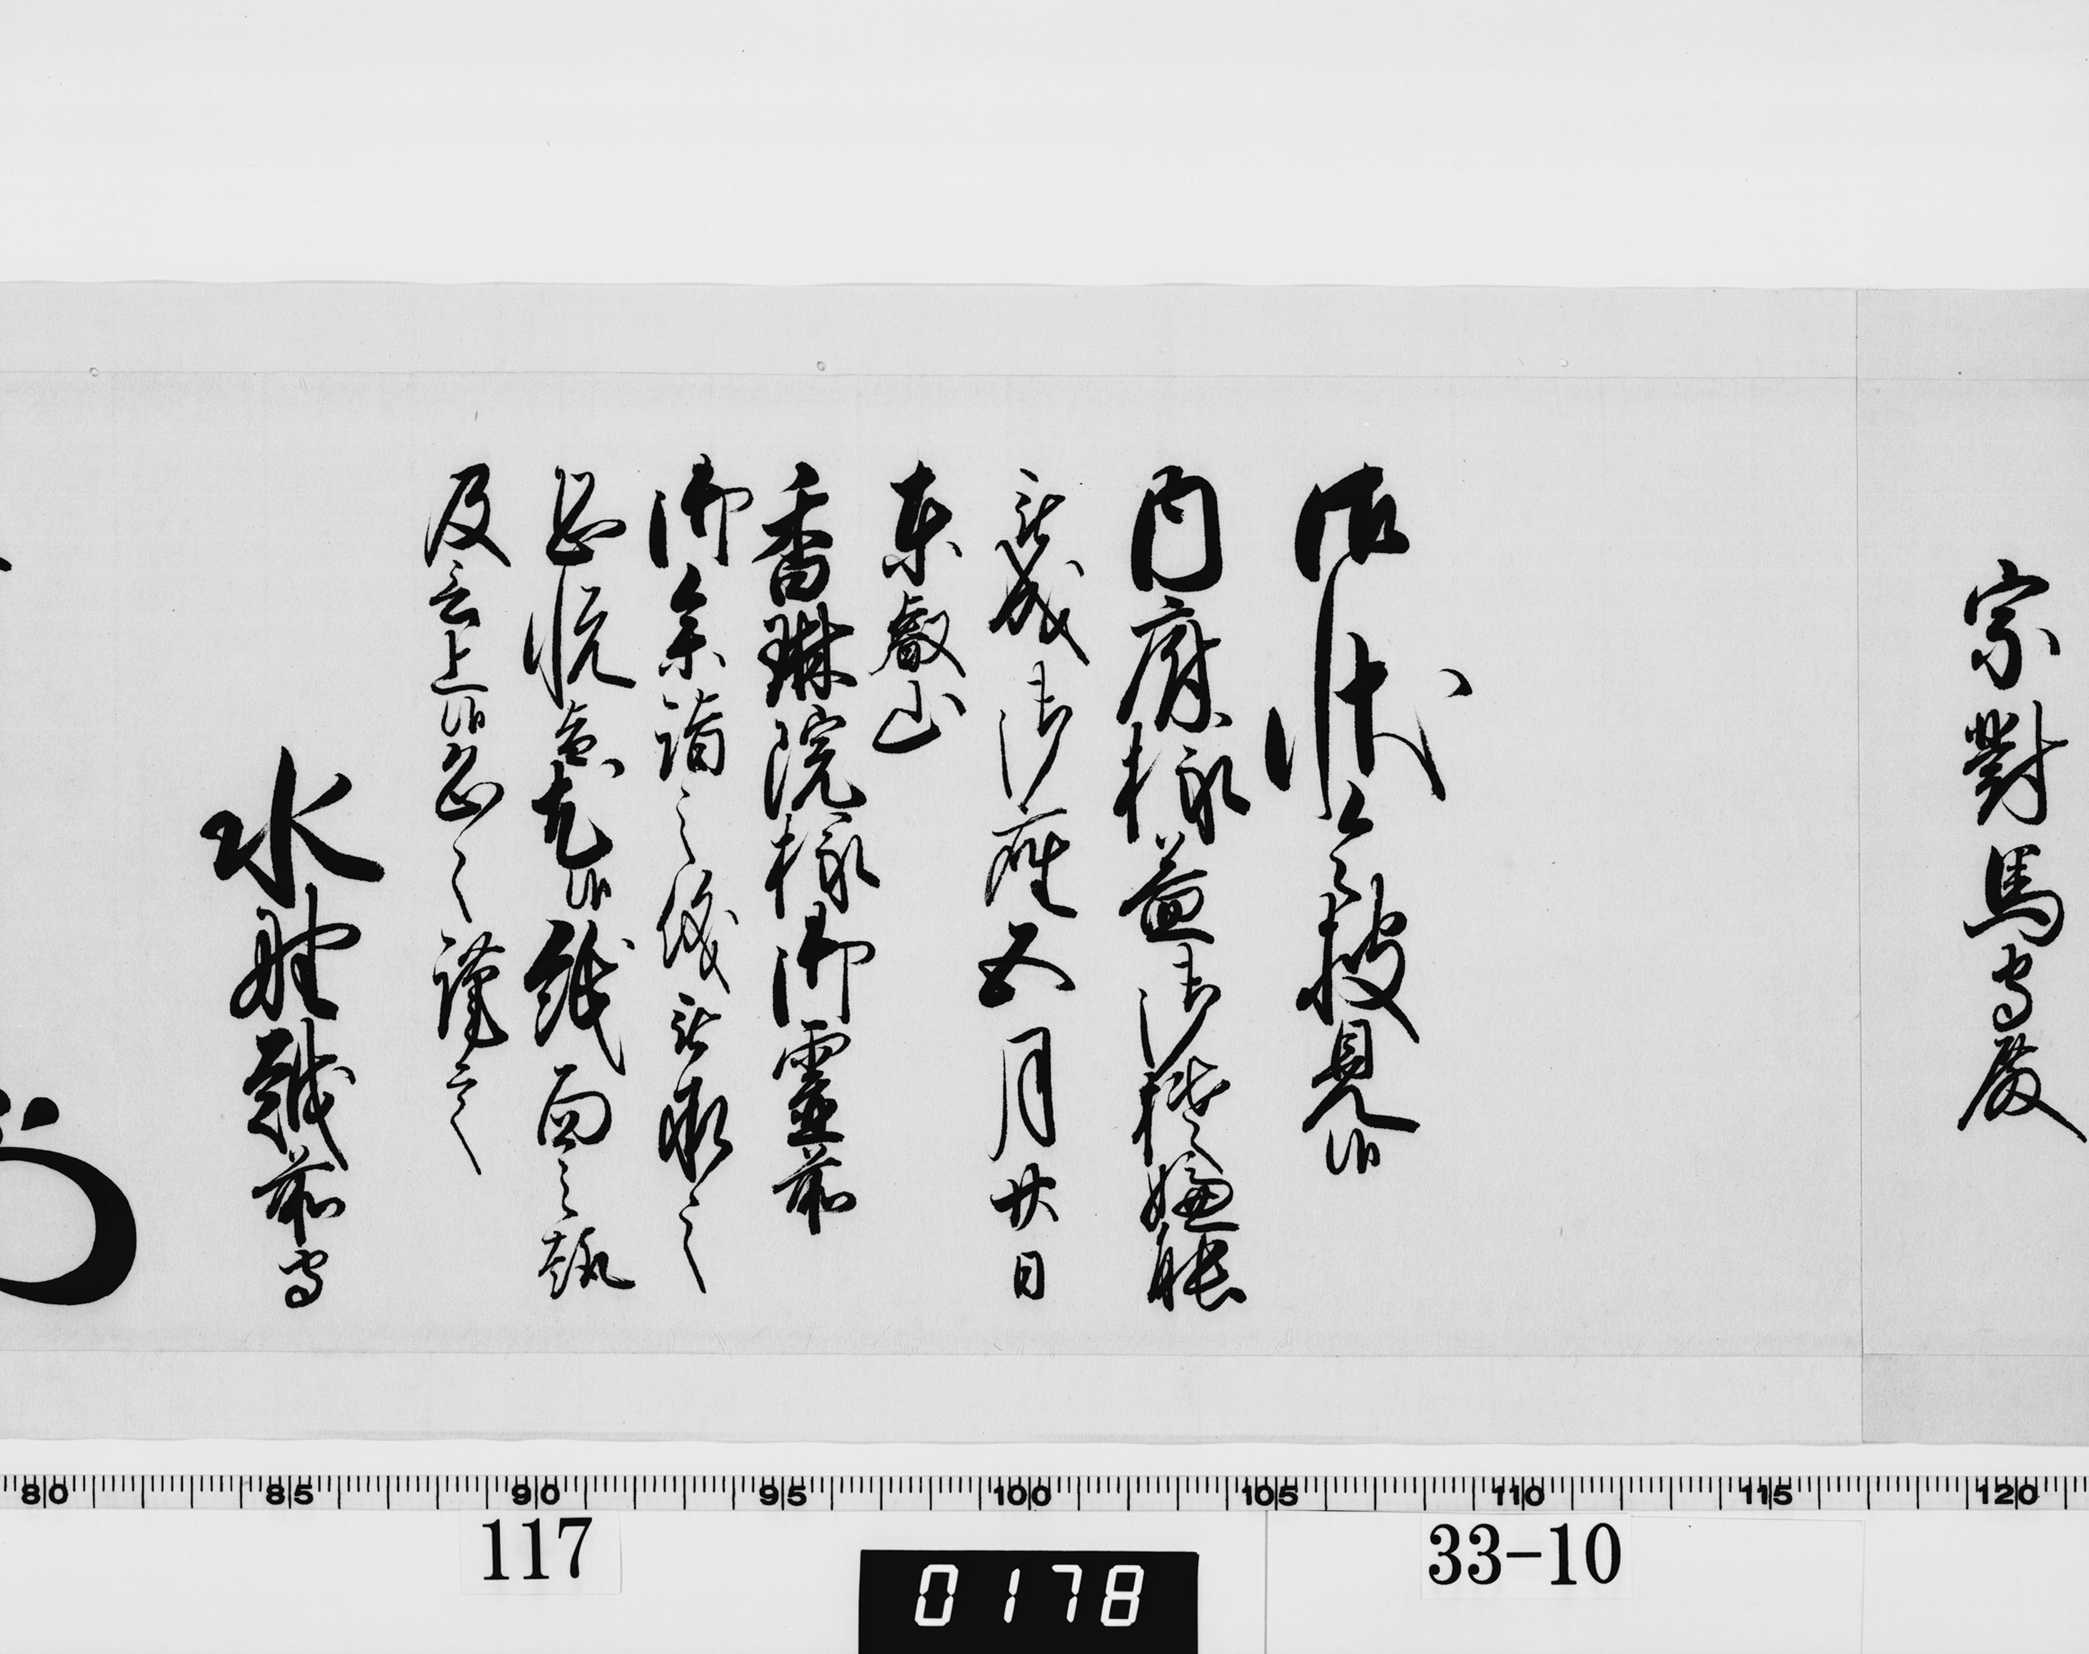 宗對馬守殿
御狀令披見候
内府様益御機嫌能
被成御座五月廿日
東叡山
香琳院様御靈前
御参詣之儀被承之
恐悦旨尤候紙面之趣
及言上候恐々謹言
水野越前守
80 85 90 95 100 105 110 115 120
117
0178
33-10